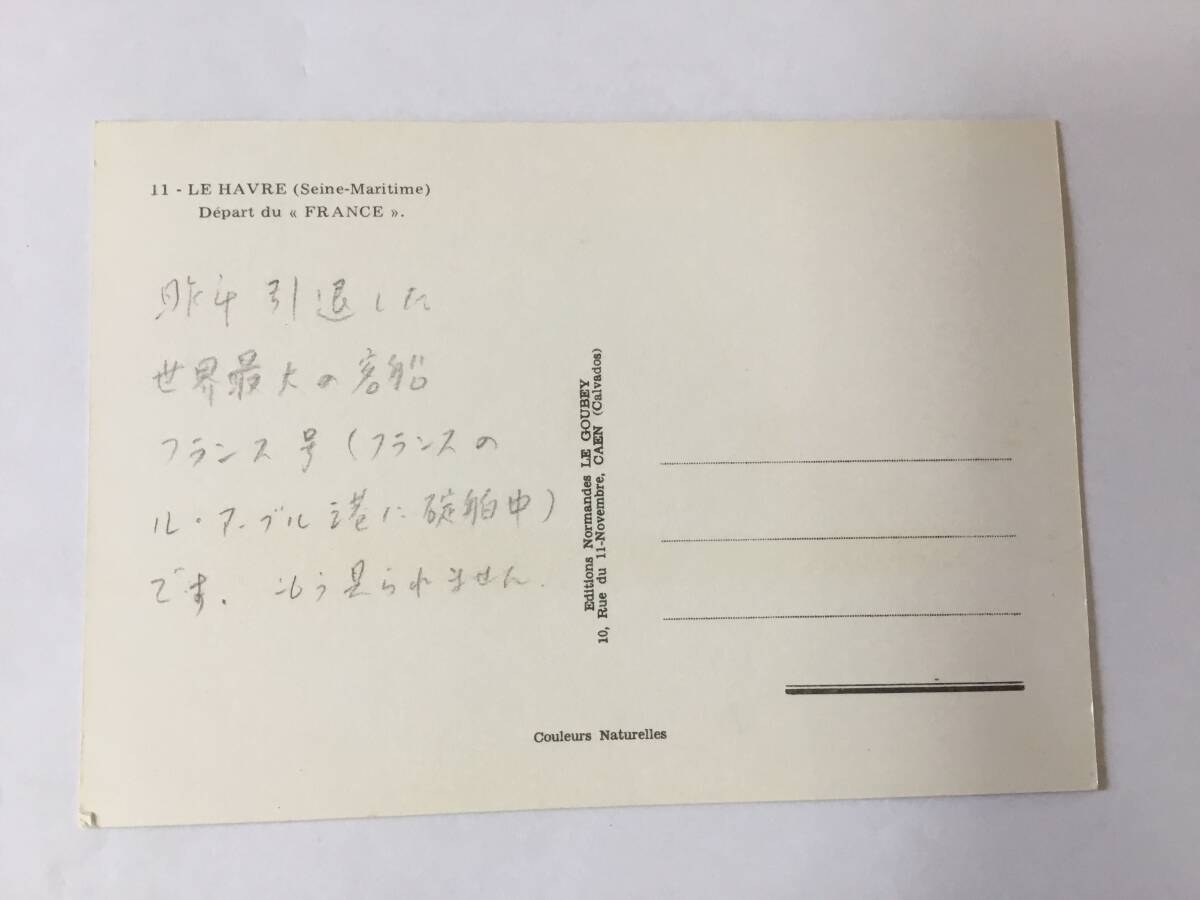 11 - LE HAVRE (Seine-Maritime)
Départ du « FRANCE ».
昨年引退した
世界最大の客船
フランス号(フランスの
ル・アーブル港に碇舶中)
です. もう見られません.
Editions Normandes LE GOUBEY
10, Rue du 11-Novembre, CAEN (Calvados)
Couleurs Naturelles